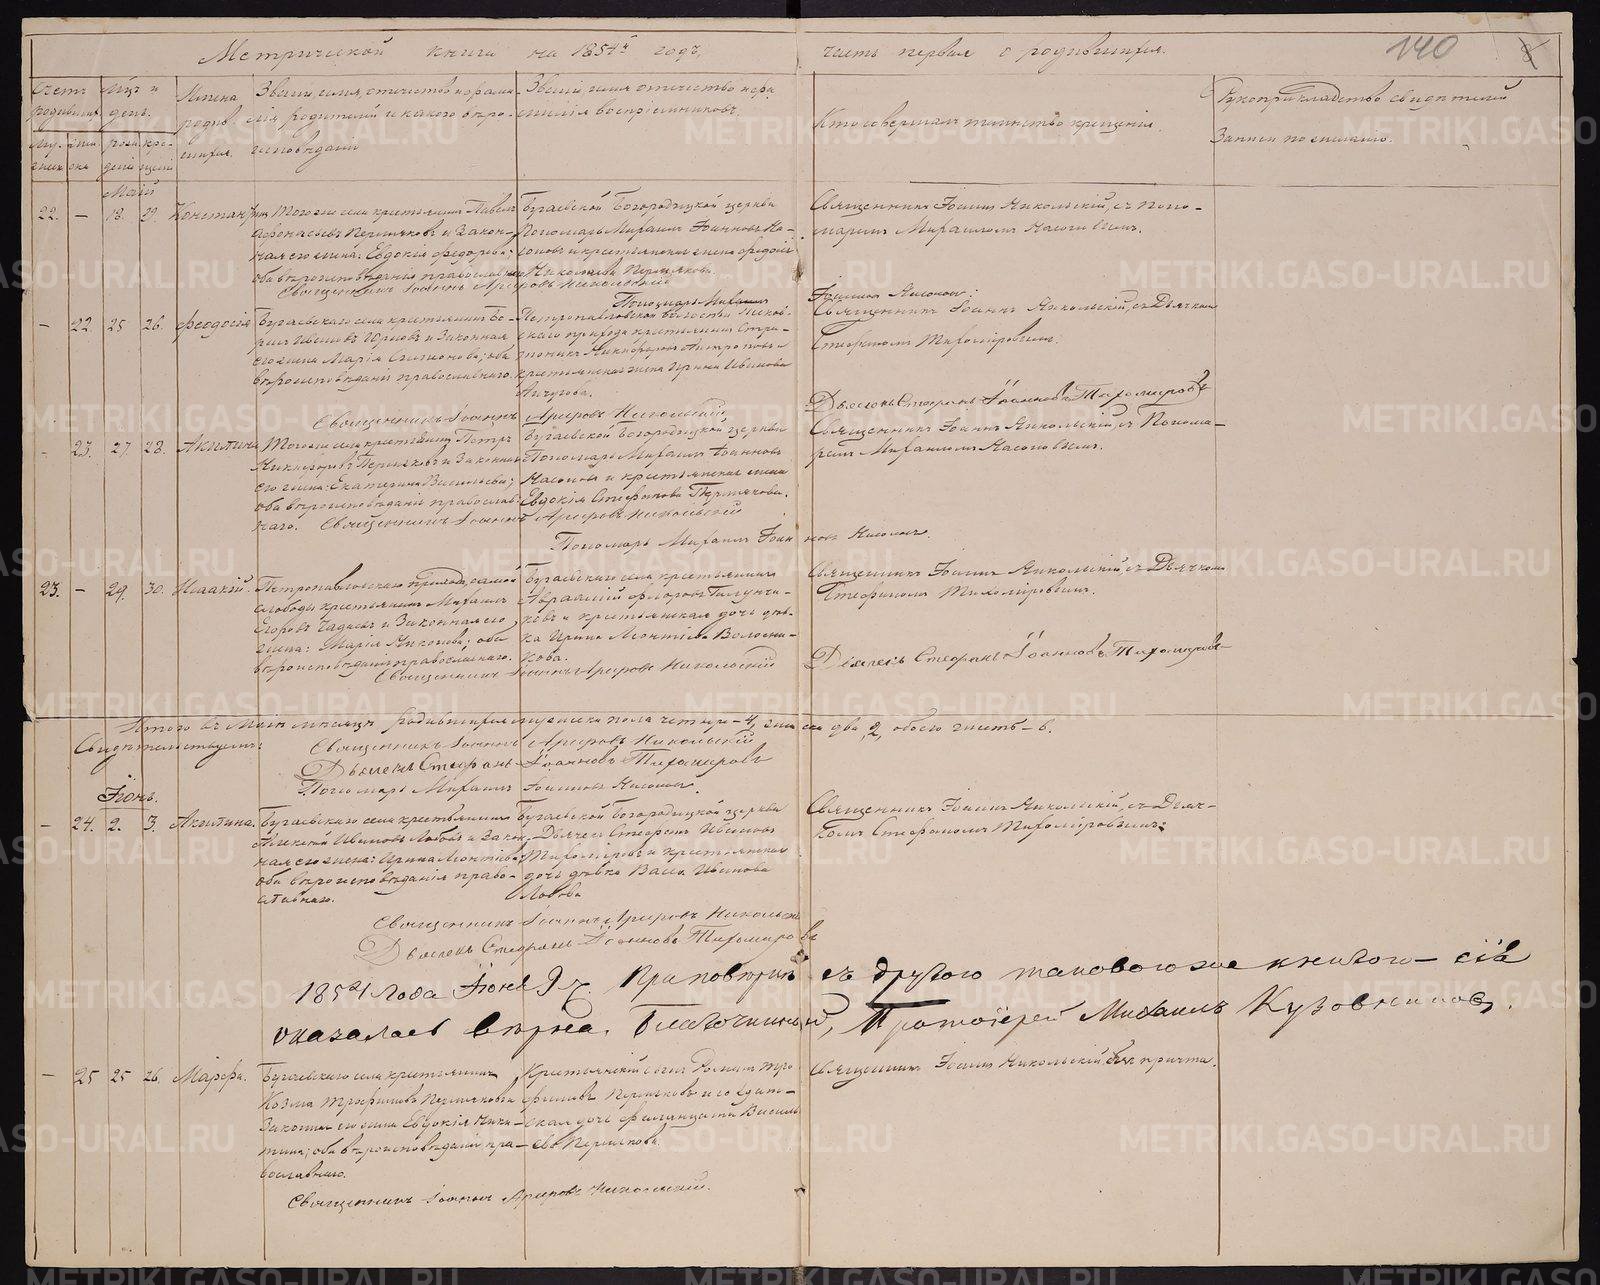 Метрической книги на 1854й годъ,
часть первая о родившихся.
140
Счетъ родивших.
Мцъ и день.
Имена родив шихся.
Званіе, имя, отчество и фами лія родителей и какого вѣро- исповѣданія
Званіе, имя отчество и фа милія воспріемниковъ,
Кто совершалъ таинство крещенія.
Рукоприкладство свидѣтелей
Записи по желанію.
Маій
22. — 18. 29. Константинъ
Тогоже села крестьянинъ Павелъ
Афонасьевъ Пермяковъ и Закон-
ная его жена: Евдокія Федорова;
оба вѣроисповѣданія православнаго
Бугаевской Богородицкой церкви
Пономарь Михаилъ Іоанновъ На-
соновъ и крестьянская жена Федосія
Николаева Пермякова.
Священникъ Іоаннъ Арефовъ Никольскій
Пономарь Михаилъ
Іоанновъ Насоновъ.
Священникъ Іоаннъ Никольскій, съ Поно-
маремъ Михаиломъ Насоновымъ.
— 22. 25 26. Феодосія
Бугаевскаго села крестьянинъ Бо-
рисъ Ивановъ и Законная
его жена Марія Симионова; оба
вѣроисповѣданія православнаго.
Петропавловской волости
скаго прихода крестьянинъ
Никифоровъ
крестьянская жена Ирина Иванова
Священникъ Іоаннъ Арефовъ Никольскій
Священникъ Іоаннъ Никольскій, съ Дьячкомъ
Стефаномъ Тихомировымъ.
Дьячекъ Стефанъ Іоанновъ Тихомировъ
— 23. 27. 28. Акилина
Тогоже села крестьянинъ Петръ
Никифоровъ Пермяковъ и Законная
его жена: Екатерина Васильева;
оба вѣроисповѣданія православ-
наго.
Бугаевской Богородицкой церкви
Пономарь Михаилъ Іоанновъ
Насоновъ и крестьянская жена
Евдокія Стефанова Пермякова.
Священникъ Іоаннъ Арефовъ Никольскій
Пономарь Михаилъ Іоанновъ Насоновъ.
Священникъ Іоаннъ Никольскій, съ Понома-
ремъ Михаиломъ Насоновымъ.
23. — 29. 30. Исаакій.
Петропавловскаго прихода, самой
слободы крестьянинъ Михаилъ
Егоровъ и Законная его
жена: Марія; оба
вѣроисповѣданія православнаго.
Бугаевскаго села крестьянинъ
Авраамій Флоровъ
и крестьянская дочь дѣв-
ка Ирина Леонтіева
Священникъ Іоаннъ Арефовъ Никольскій
Священникъ Іоаннъ Никольскій, съ Дьячкомъ
Стефаномъ Тихомировымъ.
Дьячекъ Стефанъ Іоанновъ Тихомировъ
Итого въ Маіѣ мѣсяцѣ родившихся мужеска пола четыре — 4, женска два, 2, обоего шесть — 6.
Свидѣтельствуемъ:
Священникъ Іоаннъ Арефовъ Никольскій
Дьячекъ Стефанъ Іоанновъ Тихомировъ
Пономарь Михаилъ Іоанновъ Насоновъ.
Іюнь.
— 24. 2. 3. Акилина.
Бугаевскаго села крестьянинъ
Алексѣй Ивановъ Лобовъ и Закон-
ная его жена: Ирина Леонтіева;
оба вѣроисповѣданія право-
славнаго.
Бугаевской Богородицкой церкви
Дьячекъ Стефанъ Ивановъ
Тихомировъ и крестьянская
дочь дѣвка Васса Иванова
Лобова
Священникъ Іоаннъ Арефовъ Никольскій
Дьячекъ Стефанъ Іоанновъ Тихомировъ
Священникъ Іоаннъ Никольскій, съ Дьяч-
комъ Стефаномъ Тихомировымъ.
1854 Года Іюня 9 ч. При повѣркѣ съ другою таковоюже книгою — сія
оказалась вѣрна. Благочинный, Протоіерей Михаилъ Кузовниковъ.
— 25 25 26. Марфа.
Бугаевскаго села крестьянинъ
Козма Трифиловъ Пермяковъ и
Законная его жена Евдокія Ники-
тина; оба вѣроисповѣданія пра-
вославнаго.
Крестьянскій сынъ Романъ Три-
филовъ Пермяковъ и
дочь Васильева Пермякова.
Священникъ Іоаннъ Арефовъ Никольскій.
Священникъ Іоаннъ Никольскій безъ причта.
METRIKI.GASO-URAL.RU